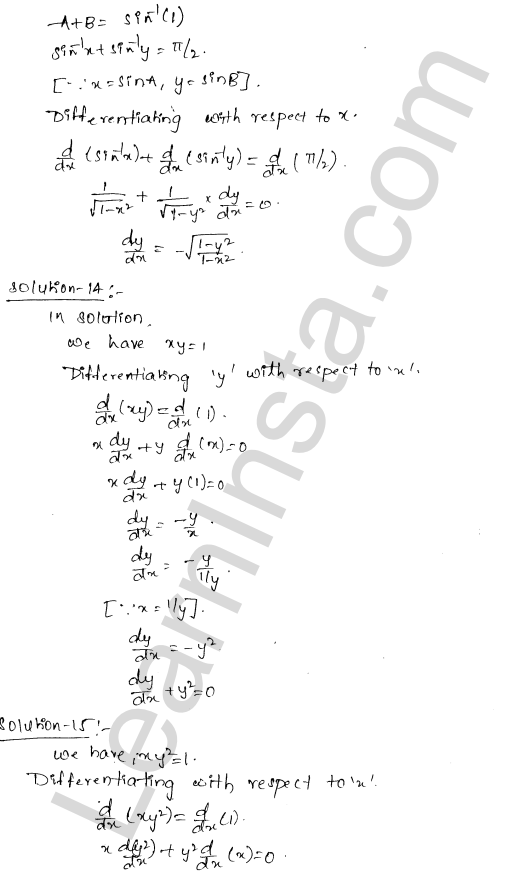 A+B = sin⁻¹(1)
sin⁻¹x + sin⁻¹y = π/2.
[∵ x = sinA, y = sinB].
Differentiating with respect to x.
d/dx (sin⁻¹x) + d/dx (sin⁻¹y) = d/dx (π/2).
1/√(1-x²) + 1/√(1-y²) × dy/dx = 0.
dy/dx = -√((1-y²)/(1-x²)).
Solution-14:-
In solution,
we have xy=1
Differentiating 'y' with respect to 'x'.
d/dx (xy) = d/dx (1).
x dy/dx + y d/dx (x) = 0
x dy/dx + y(1) = 0
dy/dx = -y/x.
dy/dx = -y/(1/y).
[∵ x = 1/y].
dy/dx = -y²
dy/dx + y² = 0
Solution-15:-
we have, xy²=1.
Differentiating with respect to 'x'.
d/dx (xy²) = d/dx (1).
x d(y²)/dx + y² d/dx (x) = 0.
LearnInsta.com